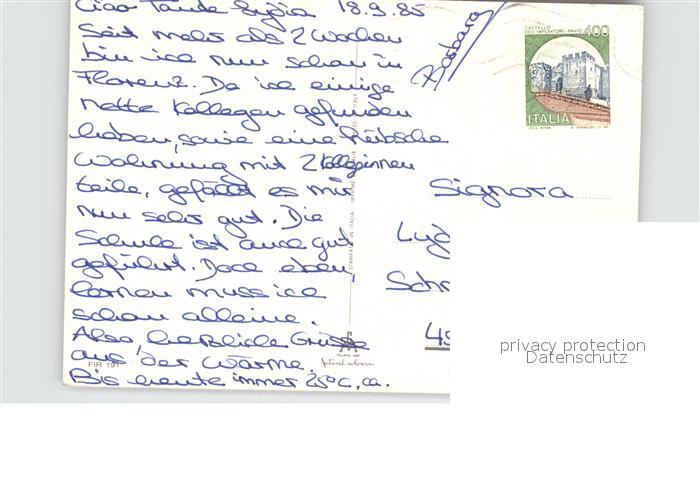 Ciao Tante Lygia 18.9.85
Seit mehr als 2 Wochen
bin ich nun schon in
Florenz. Da ich einige
nette Kollegen gefunden
haben, sowie eine hübsche
Wohnung mit 2 Kolleginnen
teile, gefällt es mir
nun sehr gut. Die
Schule ist auch gut
geführt. Doch eben,
lernen muss ich
schon alleine.
Also, herzliche Grüsse
aus der Wärme.
Bis heute immer 25°C, ca.
Barbara
FIR 191
STAMPATO IN ITALIA
MILANO DEP.
Natural colour
CASTELLO
DELL'IMPERATORE - PRATO
400
ITALIA
I.P.Z.S. ROMA
Signora
Lyg
Schr
privacy protection
Datenschutz